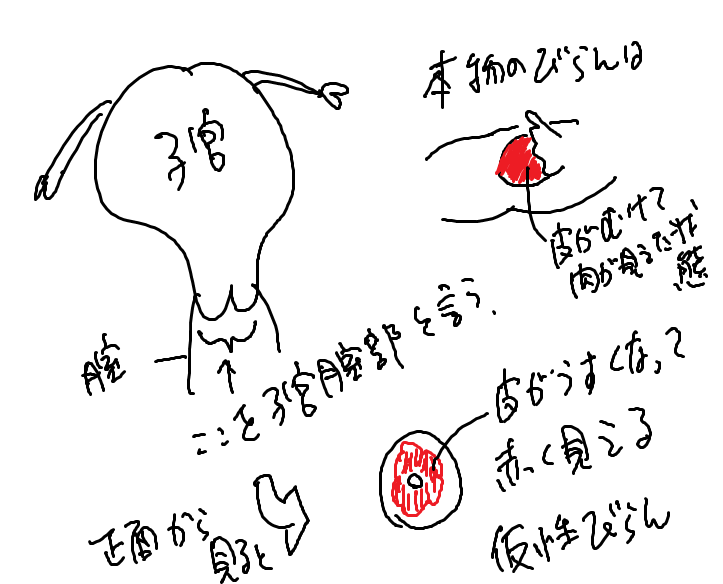 子宮
本物のびらんは
皮がむけて
肉が見えた状
態
膣
ここを子宮膣部と言う.
皮がうすくなって
赤く見える
仮性びらん
正面から
見ると